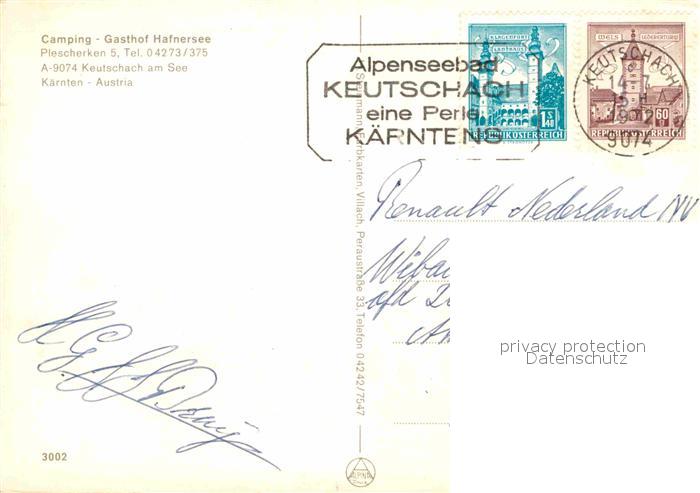 Camping - Gasthof Hafnersee
Plescherken 5, Tel. 04273/375
A-9074 Keutschach am See
Kärnten - Austria
Alpenseebad
KEUTSCHACH
eine Perle
KÄRNTENS
KLAGENFURT
LANDHAUS
1 S 40
REPUBLIK ÖSTERREICH
WELS
60
REPUBLIK ÖSTERREICH
KEUTSCHACH
9074
Farbkarten, Villach, Peraustraße 33, Telefon 04242/7547
Renault Nederland NV
afd
privacy protection
Datenschutz
3002
ALPINA